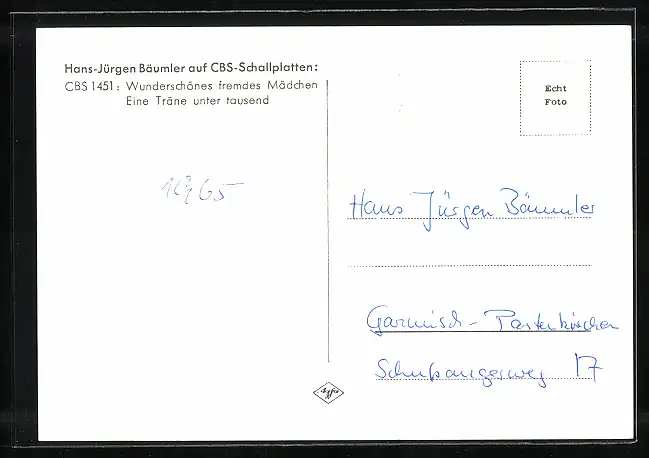 Hans-Jürgen Bäumler auf CBS-Schallplatten:
CBS 1451: Wunderschönes fremdes Mädchen
Eine Träne unter tausend
Echt
Foto
Hans Jürgen Bäumler
Garmisch-Partenkirchen
17
Agfa